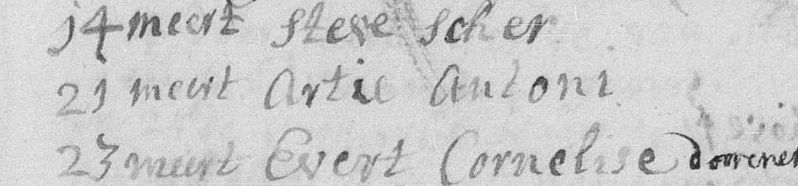 14 meert steve scher
21 meert Artie Antoni
23 meert Evert Cornelise